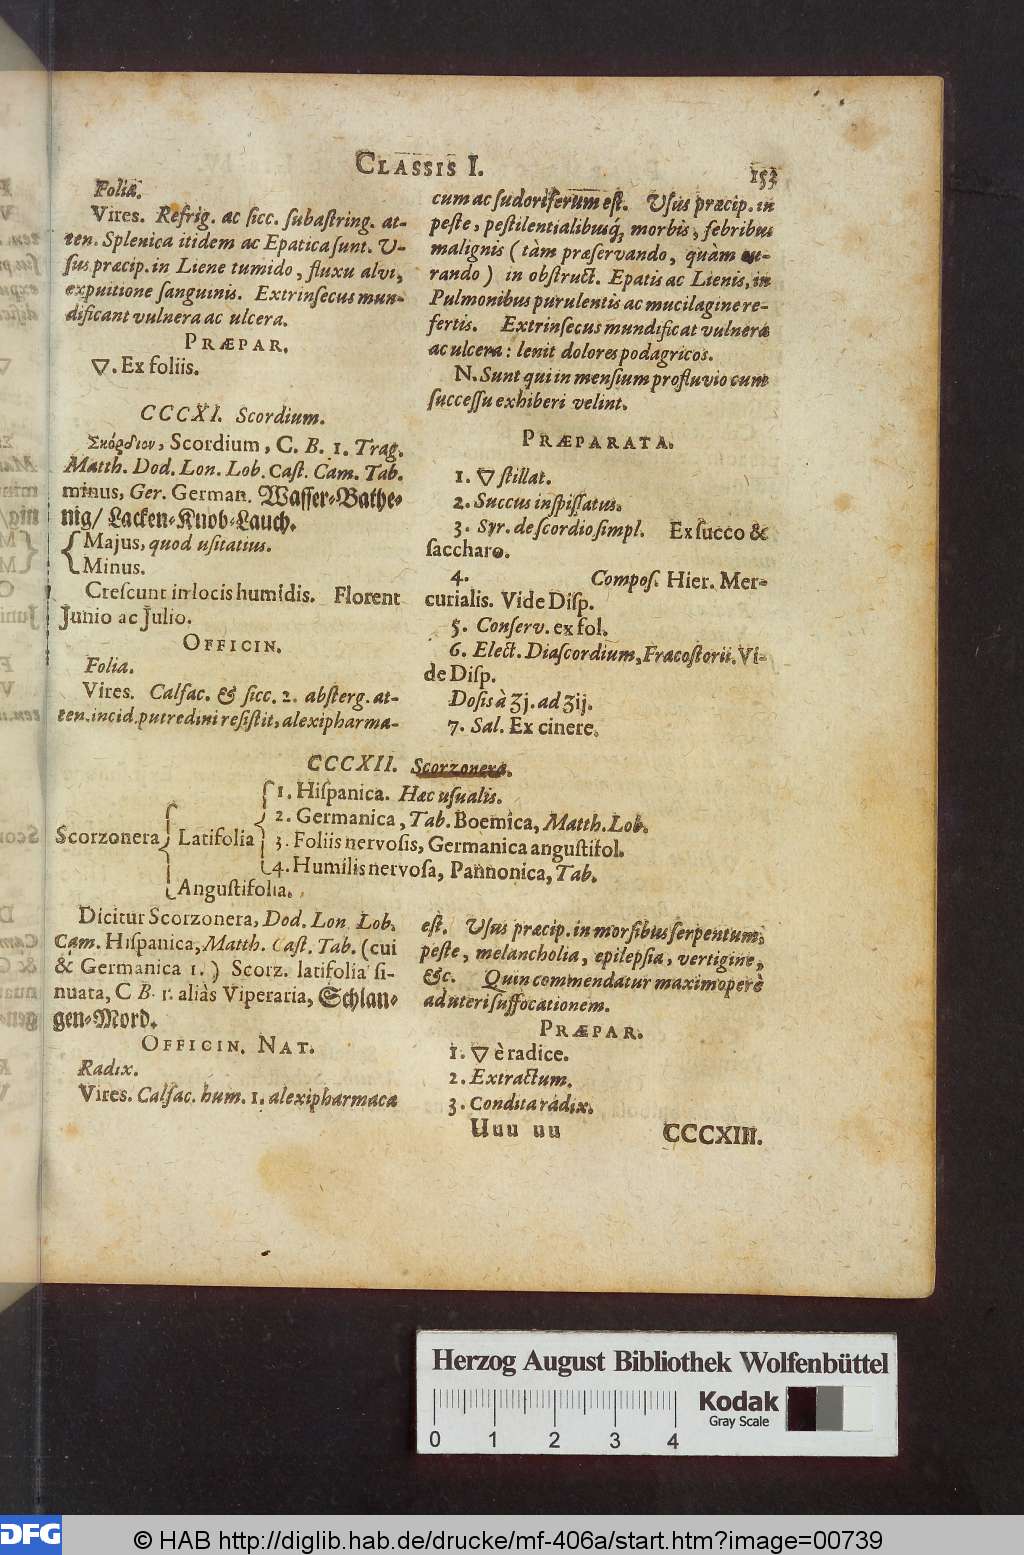 CLASSIS I.
153
Foliæ.
Vires. Refrig. ac ſicc. ſubaſtring. at-
ten. Splenica itidem ac Epatica ſunt. U-
ſus præcip. in Liene tumido, fluxu alvi,
expuitione ſanguinis. Extrinſecus mun-
dificant vulnera ac ulcera.
PRÆPAR.
▽. Ex foliis.
CCCXI. Scordium.
Σκόρδιον, Scordium, C. B. 1. Trag.
Matth. Dod. Lon. Lob. Caſt. Cam. Tab.
minus, Ger. German. Waſſer-Bathe-
nig/ Lacken-Knob-Lauch.
Majus, quod uſitatius.
Minus.
Creſcunt in locis humidis. Florent
Junio ac Julio.
OFFICIN.
Folia.
Vires. Calfac. & ſicc. 2. abſterg. at-
ten. incid. putredini reſiſtit, alexipharma-
cum ac ſudoriferum eſt. Uſus præcip. in
peſte, peſtilentialibusq́; morbis, febribus
malignis (tàm præſervando, quàm cu-
rando) in obſtruct. Epatis ac Lienis, in
Pulmonibus purulentis ac mucilagine re-
fertis. Extrinſecus mundificat vulnera
ac ulcera: lenit dolores podagricos.
N. Sunt qui in menſium profluvio cum
ſucceſſu exhiberi velint.
PRÆPARATA.
1. ▽ ſtillat.
2. Succus inſpiſſatus.
3. Syr. de ſcordio ſimpl. Ex ſucco &
ſaccharo.
4. Compoſ. Hier. Mer-
curialis. Vide Diſp.
5. Conſerv. ex fol.
6. Elect. Diaſcordium, Fracoſtorii. Vi-
de Diſp.
Doſis à ʒj. ad ʒij.
7. Sal. Ex cinere.
CCCXII. Scorzonera.
1. Hiſpanica. Hæc uſualis.
2. Germanica, Tab. Boemica, Matth. Lob.
Scorzonera Latifolia 3. Foliis nervoſis, Germanica anguſtifol.
4. Humilis nervoſa, Pannonica, Tab.
Anguſtifolia.
Dicitur Scorzonera, Dod. Lon. Lob.
Cam. Hiſpanica, Matth. Caſt. Tab. (cui
& Germanica 1.) Scorz. latifolia ſi-
nuata, C B. 1. aliàs Viperaria, Schlan-
gen-Mord.
OFFICIN. NAT.
Radix.
Vires. Calfac. hum. 1. alexipharmaca
eſt. Uſus præcip. in morſibus ſerpentum,
peſte, melancholia, epilepſia, vertigine,
&c. Quin commendatur maximoperè
ad uteri ſuffocationem.
PRÆPAR.
1. ▽ è radice.
2. Extractum.
3. Condita radix.
Uuu uu
CCCXIII.
Herzog August Bibliothek Wolfenbüttel
0 1 2 3 4
Kodak
Gray Scale
DFG
© HAB http://diglib.hab.de/drucke/mf-406a/start.htm?image=00739